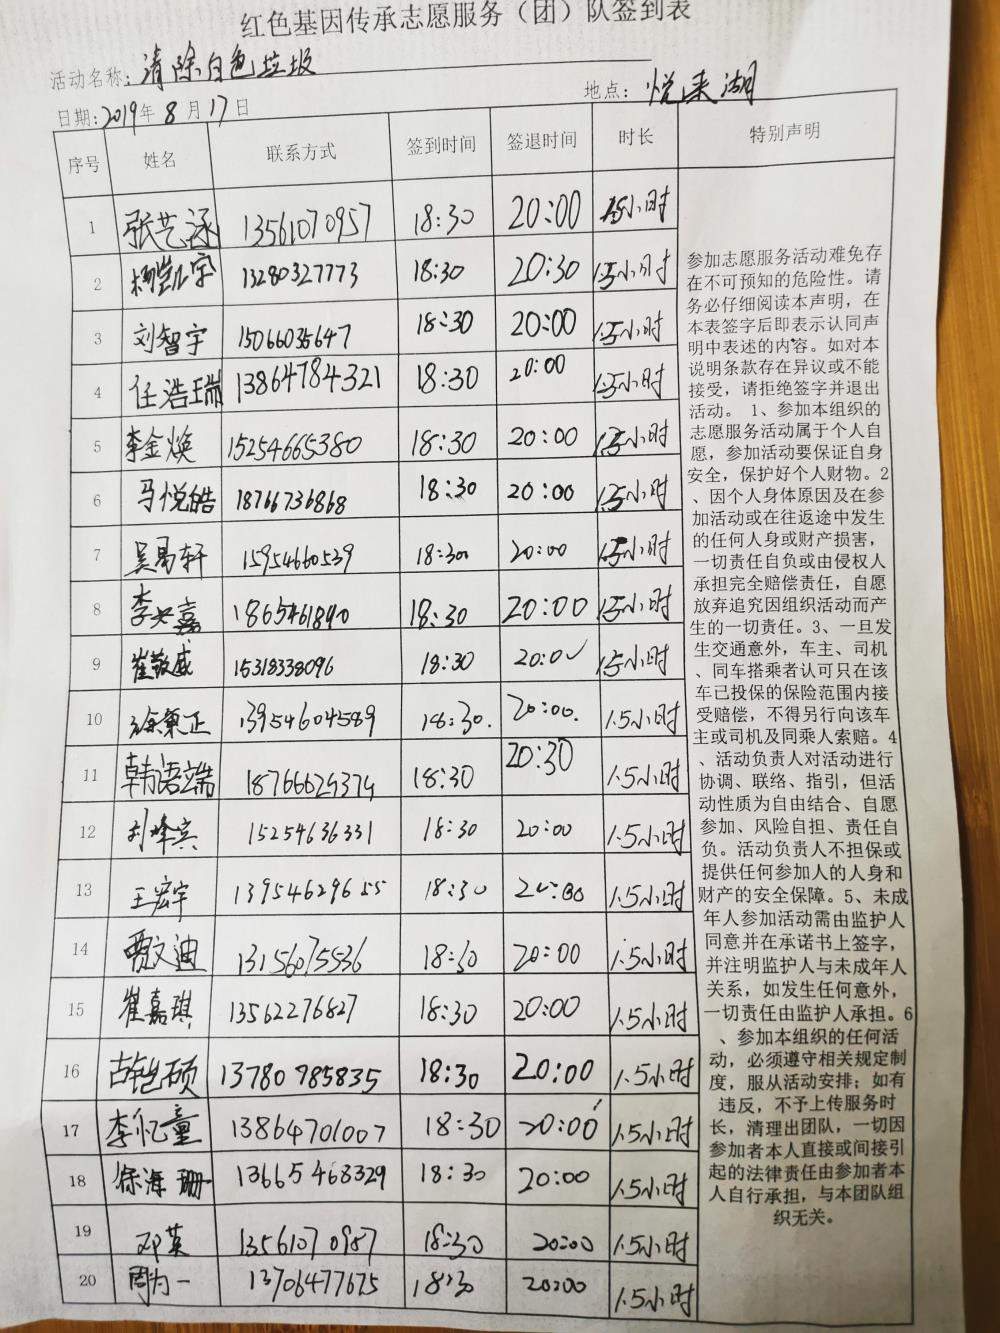 红色基因传承志愿服务（团）队签到表
活动名称：清除白色垃圾
日期：2019年8月17日 地点：悦来湖
序号 姓名 联系方式 签到时间 签退时间 时长 特别声明
1 张艺涵 13561070957 18:30 20:00 1.5小时
2 杨凯宇 13280327773 18:30 20:30 1.5小时
3 刘智宇 15066035647 18:30 20:00 1.5小时
4 任浩瑞 13864784321 18:30 20:00 1.5小时
5 李金焕 15254665380 18:30 20:00 1.5小时
6 马悦皓 18766736868 18:30 20:00 1.5小时
7 吴禹轩 15954660539 18:300 20:00 1.5小时
8 李 嘉 1865461840 18:30 20:00 1.5小时
9 崔敬威 15318338096 18:30 20:00 1.5小时
10 徐秉正 13954604589 18:30. 20:00. 1.5小时
11 韩语端 18766629374 18:30 20:30 1.5小时
12 刘峰宾 15254636331 18:30 20:00 1.5小时
13 王宏宇 13954629655 18:30 20:00 1.5小时
14 贾文迪 13156075536 18:30 20:00 1.5小时
15 崔嘉琪 13562276827 18:30 20:00 1.5小时
16 古铠硕 13780785835 18:30 20:00 1.5小时
17 李忆童 13864701007 18:30 20:00 1.5小时
18 徐海珊 13665468329 18:30 20:00 1.5小时
19 邓英 13561070987 18:30 20:00 1.5小时
20 周为一 13706477675 18:30 20:00 1.5小时
参加志愿服务活动难免存
在不可预知的危险性。请
务必仔细阅读本声明，在
本表签字后即表示认同声
明中表述的内容。如对本
说明条款存在异议或不能
接受，请拒绝签字并退出
活动。 1、参加本组织的
志愿服务活动属于个人自
愿，参加活动要保证自身
安全，保护好个人财物。2
、因个人身体原因及在参
加活动或在往返途中发生
的任何人身或财产损害，
一切责任自负或由侵权人
承担完全赔偿责任，自愿
放弃追究因组织活动而产
生的一切责任。3、一旦发
生交通意外，车主、司机
、同车搭乘者认可只在该
车已投保的保险范围内接
受赔偿，不得另行向该车
主或司机及同乘人索赔。4
、活动负责人对活动进行
协调、联络、指引，但活
动性质为自由结合、自愿
参加、风险自担、责任自
负。活动负责人不担保或
提供任何参加人的人身和
财产的安全保障。5、未成
年人参加活动需由监护人
同意并在承诺书上签字，
并注明监护人与未成年人
关系，如发生任何意外，
一切责任由监护人承担。6
、参加本组织的任何活
动，必须遵守相关规定制
度，服从活动安排；如有
违反，不予上传服务时
长，清理出团队，一切因
参加者本人直接或间接引
起的法律责任由参加者本
人自行承担，与本团队组
织无关。